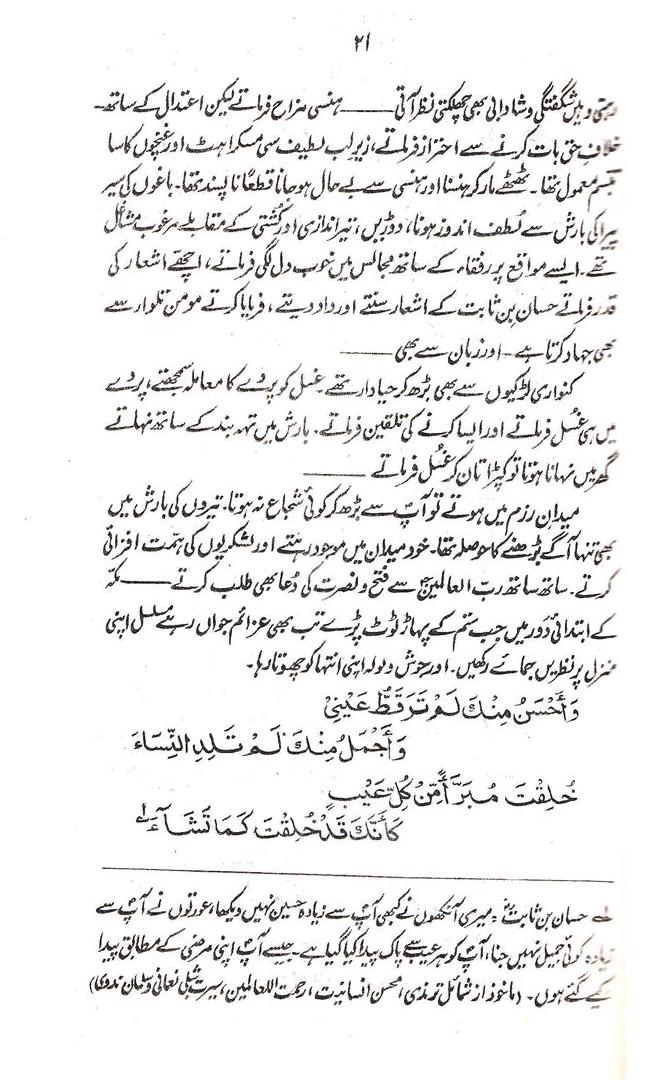 ۲۱
وہیں شگفتگی و شادابی بھی جھلکتی نظر آتی —— ہنسی مزاح فرماتے لیکن اعتدال کے ساتھ۔
خلاف حق بات کرنے سے احتراز فرماتے، زیر لب لطیف سی مسکراہٹ اور غنچوں کا سا
تبسم معمول تھا۔ ٹھٹھے مار کر ہنسنا اور ہنسی سے بے حال ہو جانا قطعاً ناپسند تھا۔ باغوں کی سیر
کی بارش سے لُطف اندوز ہونا، دوڑیں، تیراندازی اور کُشتی کے مقابلے مرغوب مشاغل
تھے۔ ایسے مواقع پر رفقاء کے ساتھ مجالس میں خوب دل لگی فرماتے، اچھے اشعار کی
قدر فرماتے حسان بن ثابت کے اشعار سنتے اور داد دیتے، فرمایا کرتے مومن تلوار سے
بھی جہاد کرتا ہے۔ اور زبان سے بھی ——
کنواری لڑکیوں سے بھی بڑھ کر حیادار تھے۔ غسل کو پردے کا معاملہ سمجھتے، پردے
میں ہی غُسل فرماتے اور ایسا کرنے کی تلقین فرماتے۔ بارش میں تہہ بند کے ساتھ نہاتے
گھر میں نہانا ہوتا تو کپڑا تان کر غُسل فرماتے ——
میدان رزم میں ہوتے تو آپؐ سے بڑھ کر کوئی شجاع نہ ہوتا۔ تیروں کی بارش میں
بھی تنہا آگے بڑھنے کا حوصلہ تھا۔ خود میدان میں موجود رہتے اور لشکریوں کی ہمت افزائی
کرتے۔ ساتھ ساتھ ربّ العالمین سے فتح و نصرت کی دُعا بھی طلب کرتے —— مکہ
کے ابتدائی دَور میں جب ستم کے پہاڑ ٹوٹ پڑے تب بھی عزائم جواں رہے مسلسل اپنی
منزل پر نظریں جمائے رکھیں۔ اور جوش و ولولہ اپنی انتہا کو چھوتا رہا۔
وَأَحْسَنُ مِنْكَ لَمْ تَرَ قَطُّ عَيْنِيْ
وَأَجْمَلُ مِنْكَ لَمْ تَلِدِ النِّسَاءُ
خُلِقْتَ مُبَرَّأً مِّنْ كُلِّ عَيْبٍ
كَأَنَّكَ قَدْ خُلِقْتَ كَمَا تَشَآءُ ۱؎
۱؎ حسان بن ثابتؓ = میری آنکھوں نے کبھی آپؐ سے زیادہ حسین نہیں دیکھا، عورتوں نے آپؐ سے
زیادہ کوئی جمیل نہیں جنا، آپؐ کو ہر عیب سے پاک پیدا کیا گیا ہے۔ جیسے آپؐ اپنی مرضی کے مطابق پیدا
کیے گئے ہوں۔ (ماخوذ از شمائل ترمذی، محسن انسانیت، رحمت اللعالمین، سیرت شبلی نعمانی و سلمان ندوی)